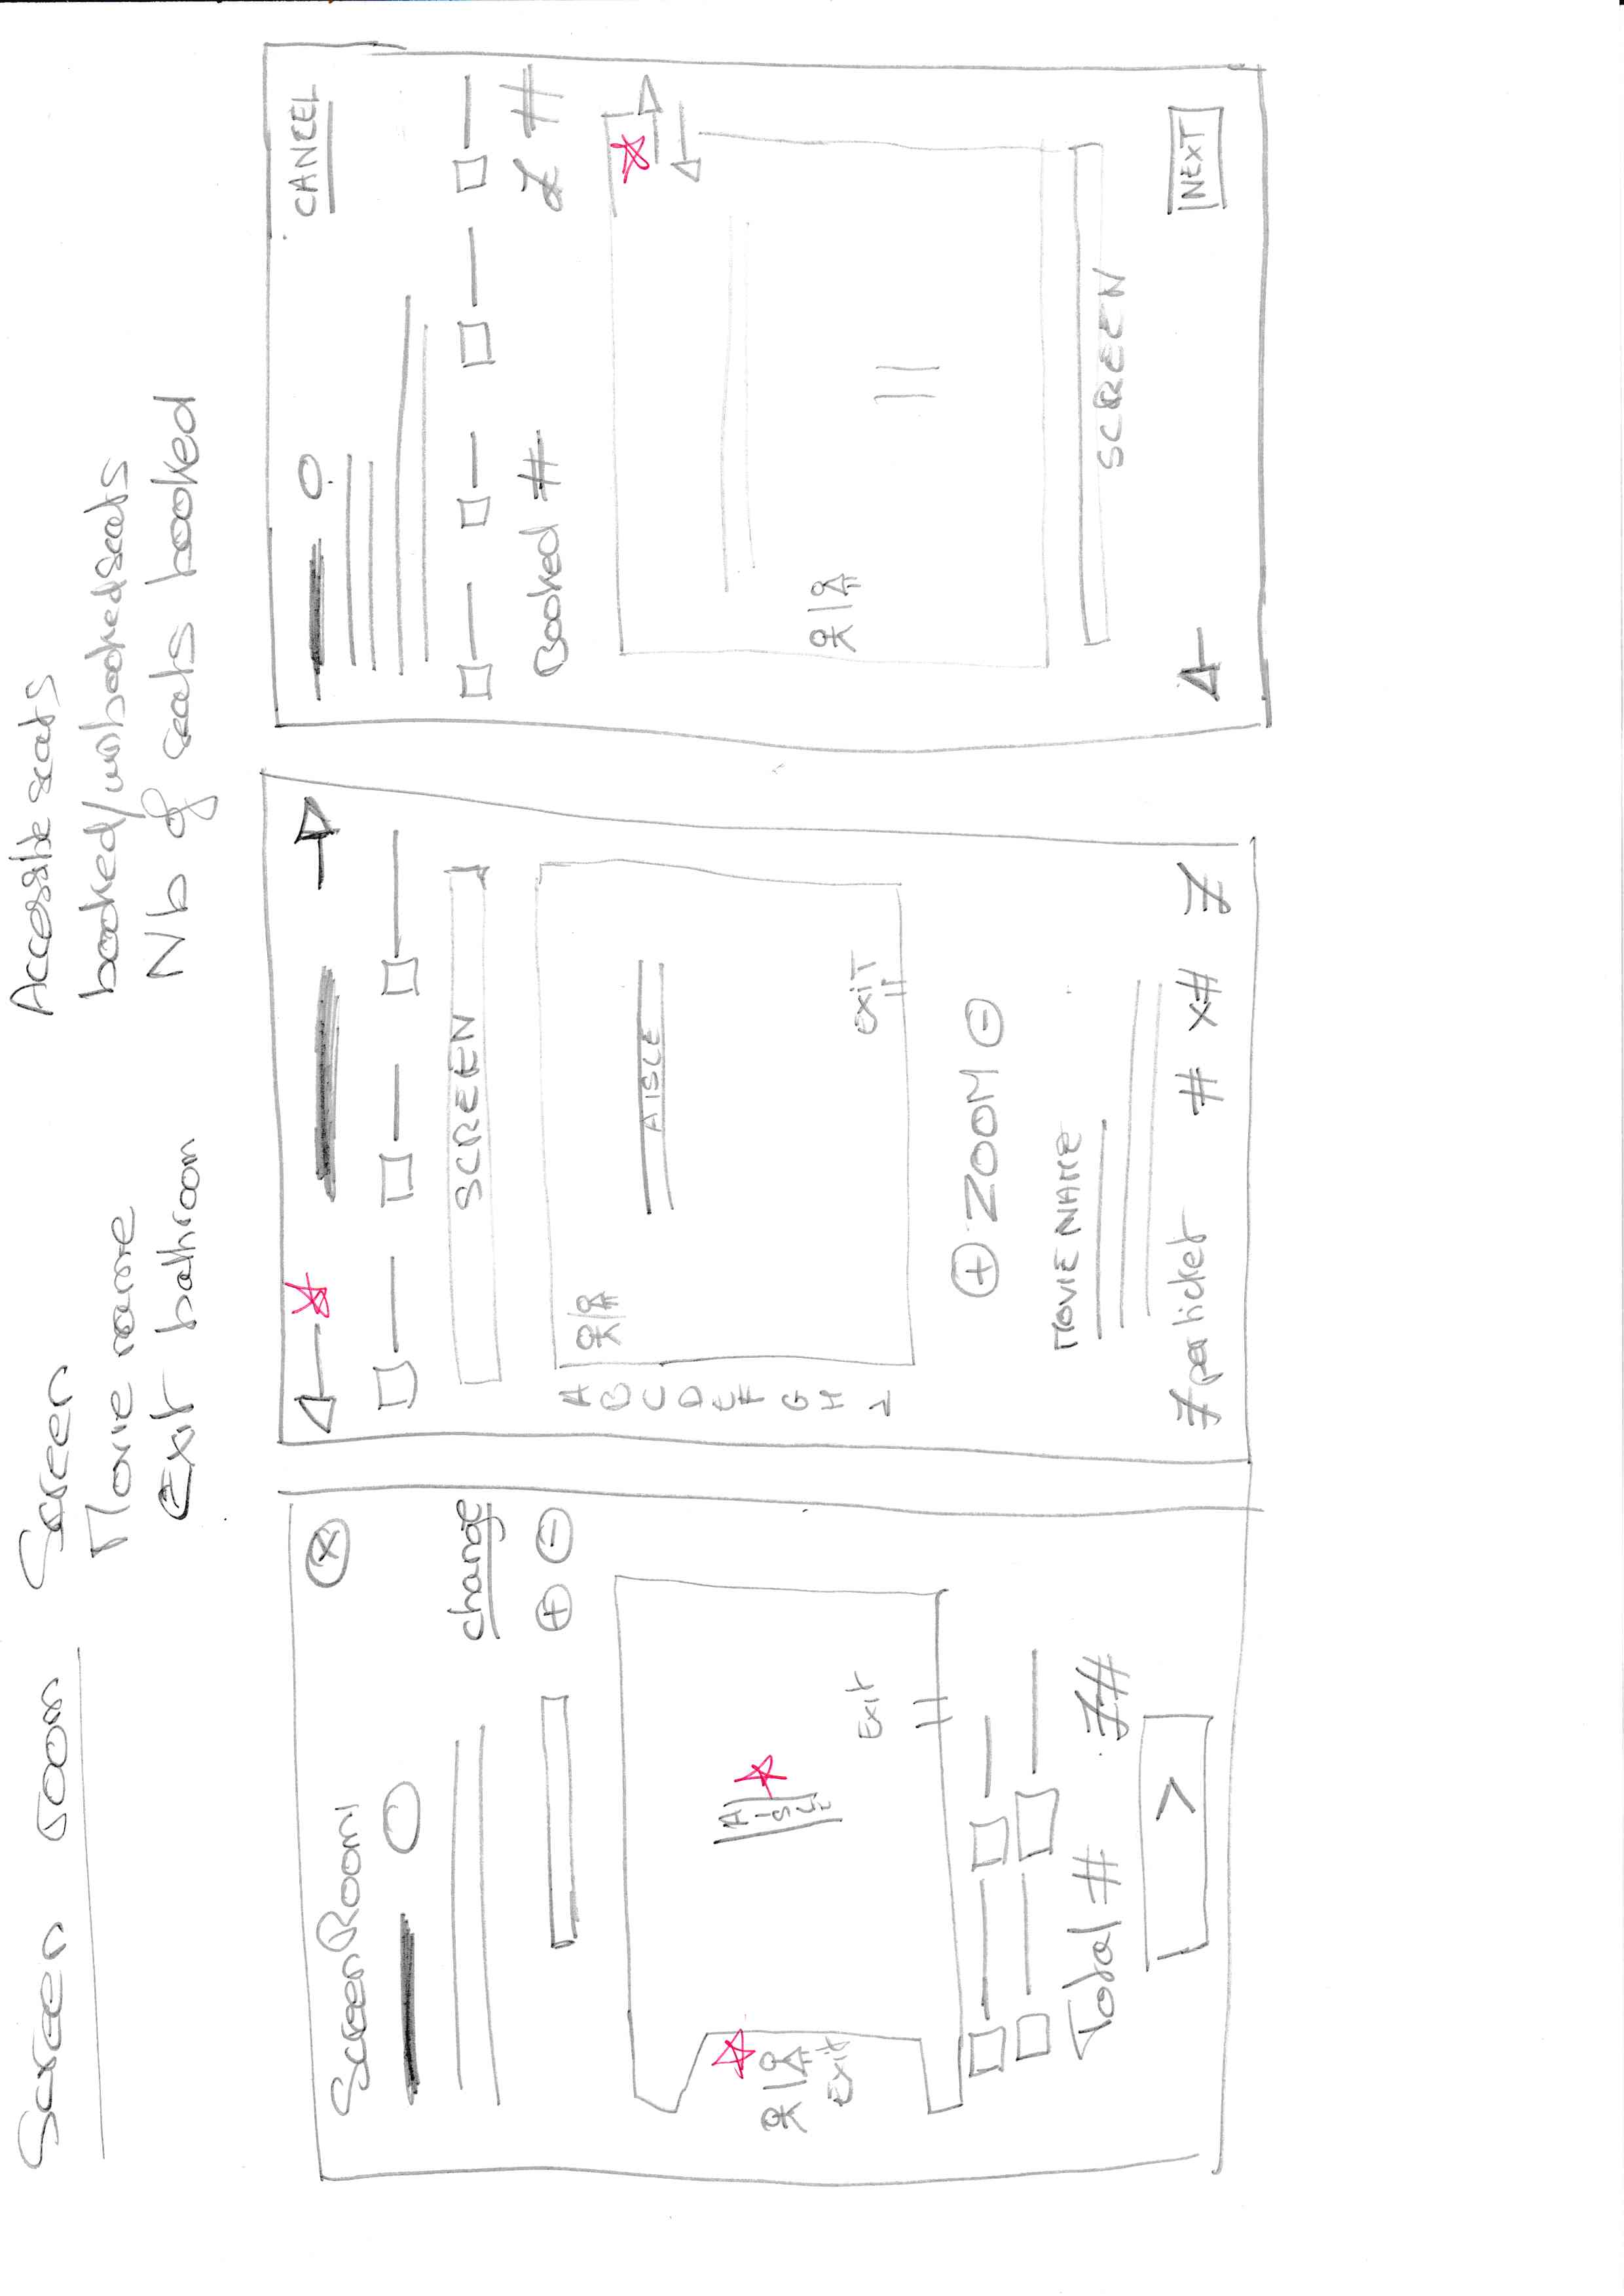 Screen room
Screen
Movie name
Exit bathroom
Accessible seats
booked/unbooked seats
Nb of seats booked
Screen Room 1
X
change
+ -
AISLE
Exit
Exit
Total #
#
>
SCREEN
A
B
C
D
E
F
G
H
AISLE
exit
+ ZOOM -
MOVIE NAME
per ticket
# x#
CANCEL
Booked #
#
SCREEN
NEXT